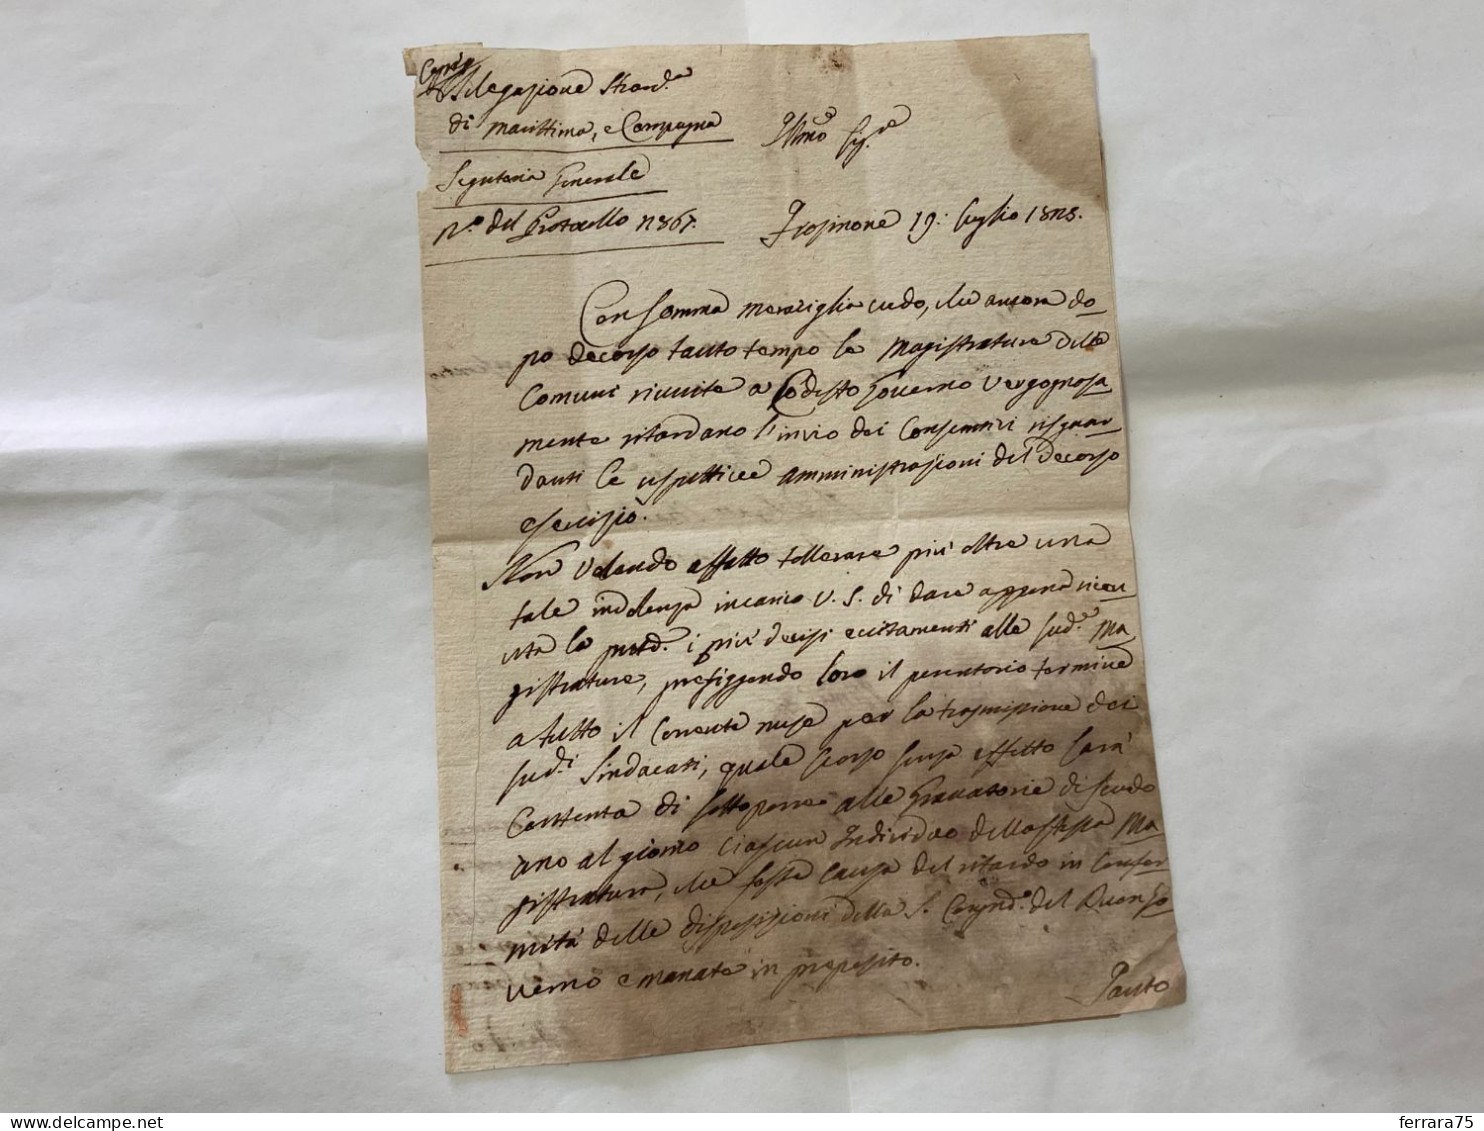 Copia
Delegazione Straord.a
di Marittima, e Campagna
Segreteria Generale
N.o del Protocollo
Illmo Sig.re
Frosinone 19: Luglio
Con somma meraviglia vedo, che ancora do-
po decorso tanto tempo le Magistrature delle
Comuni riunite a Codesto Governo vergognosa
mente ritardano l'invio dei Consuntivi risguar-
danti le rispettive amministrazioni del decorso
esercizio.
Non volendo affatto tollerare più oltre una
tale indolenza incarico V. S. di dare appena ricev
uta la i più decisi eccitamenti alle sud.e Ma
gistrature, prefiggendo loro il perentorio termine
a tutto il corrente mese per la trasmissione dei
sud.i Sindacati, quale scorso senza effetto sarà
di sottoporre alle Gravatorie di scudo
uno al giorno ciascun Individuo della stessa Ma-
gistratura, che fosse causa del ritardo in confor
mità delle disposizioni della S. del Buon Go
verno emanate in proposito.
Tanto
ferrara75